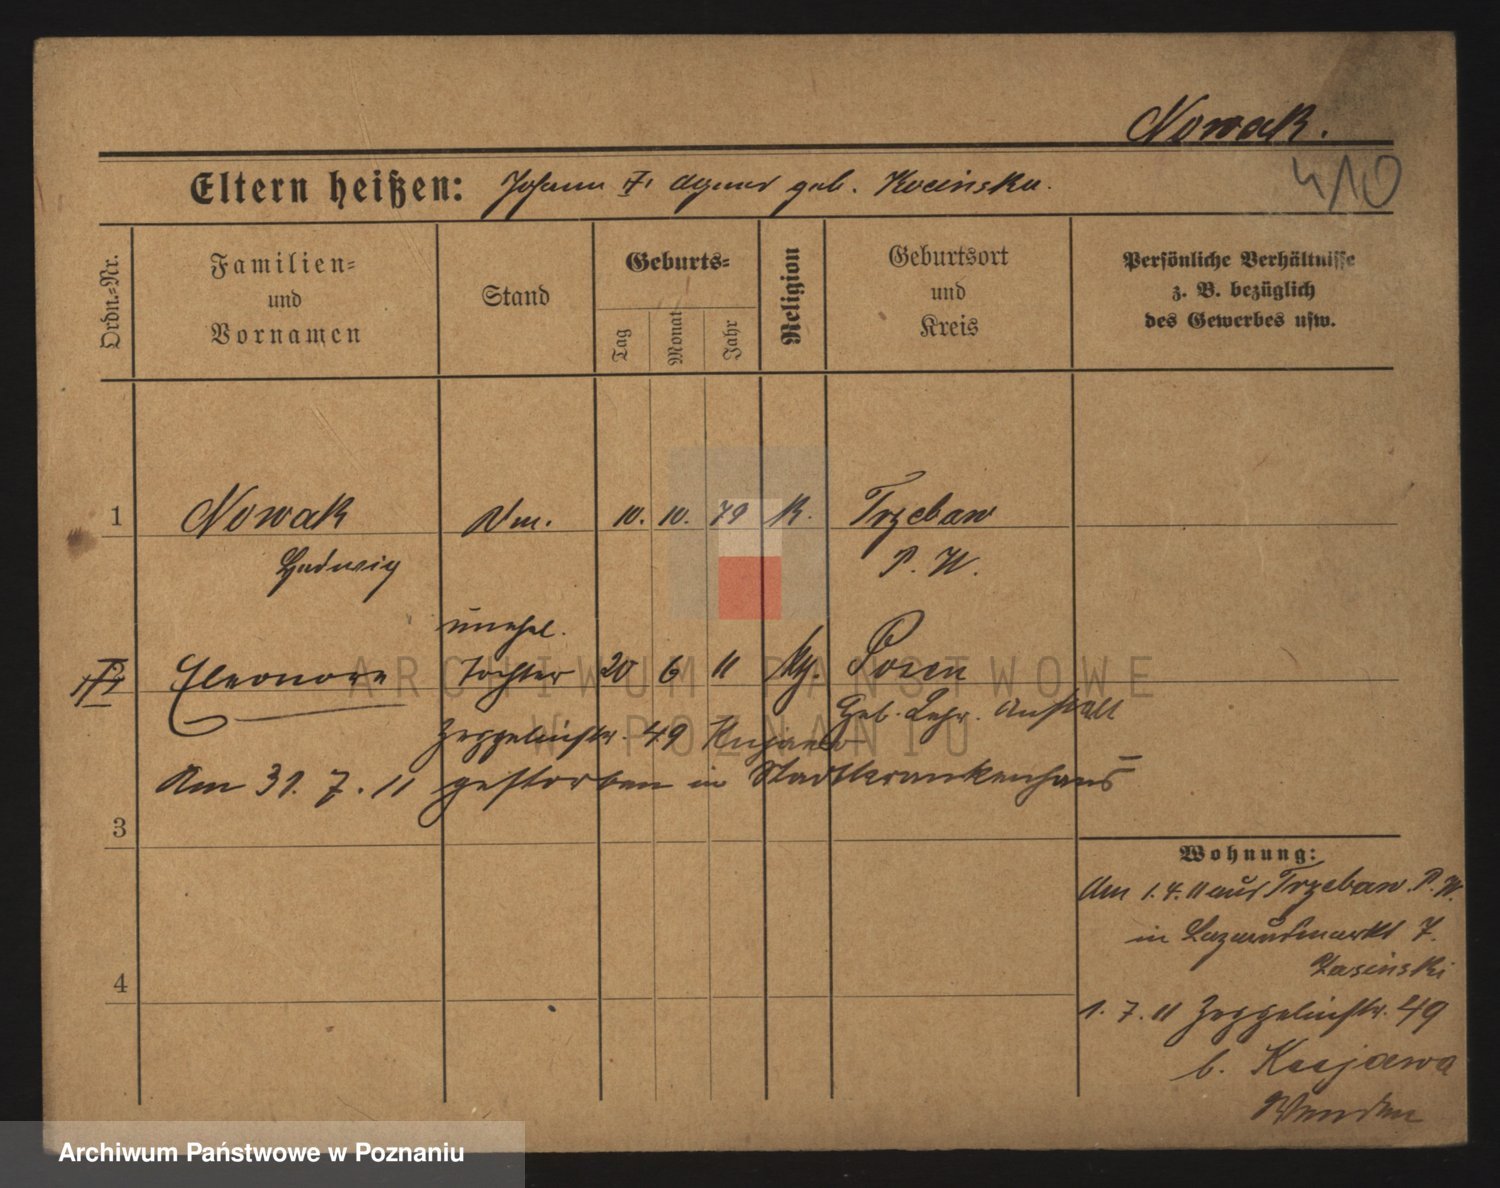 Nowak.
410
Eltern heißen: Johann † Agnes geb. Kocinska.
Ordn.-Nr.
Familien-
und
Vornamen
Stand
Geburts-
Tag
Monat
Jahr
Religion
Geburtsort
und
Kreis
Persönliche Verhältnisse
z. B. bezüglich
des Gewerbes usw.
1 Nowak 10. 10. 79 k. Trzebaw
Ludwig P. W.
unehel.
Eleonore Tochter 20 6 11 Posen
Geb. Lehr. Anstalt
Zeppelinstr. 49 Kujawa
Am 31. 7. 11 gestorben in Stadtkrankenhaus
3
Wohnung:
Am 1. 4. 11 aus Trzebaw. P. W.
in Lazarusmarkt 7.
Jasinski
4
1. 7. 11 Zeppelinstr. 49
b. Kujawa
ARCHIWUM PAŃSTWOWE
W POZNANIU
Archiwum Państwowe w Poznaniu